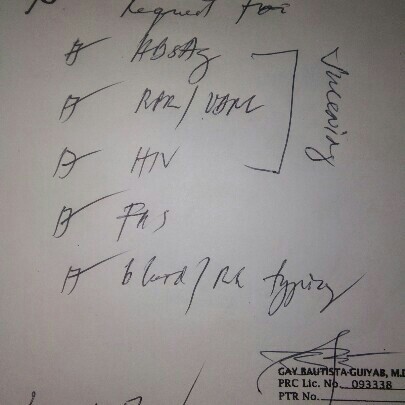 Request for
HBsAg
RPR/VDRL
HIV
Screening
FBS
blood/Rh typing
GAY BAUTISTA-GUIYAB, M.D
PRC Lic. No. 093338
PTR No.